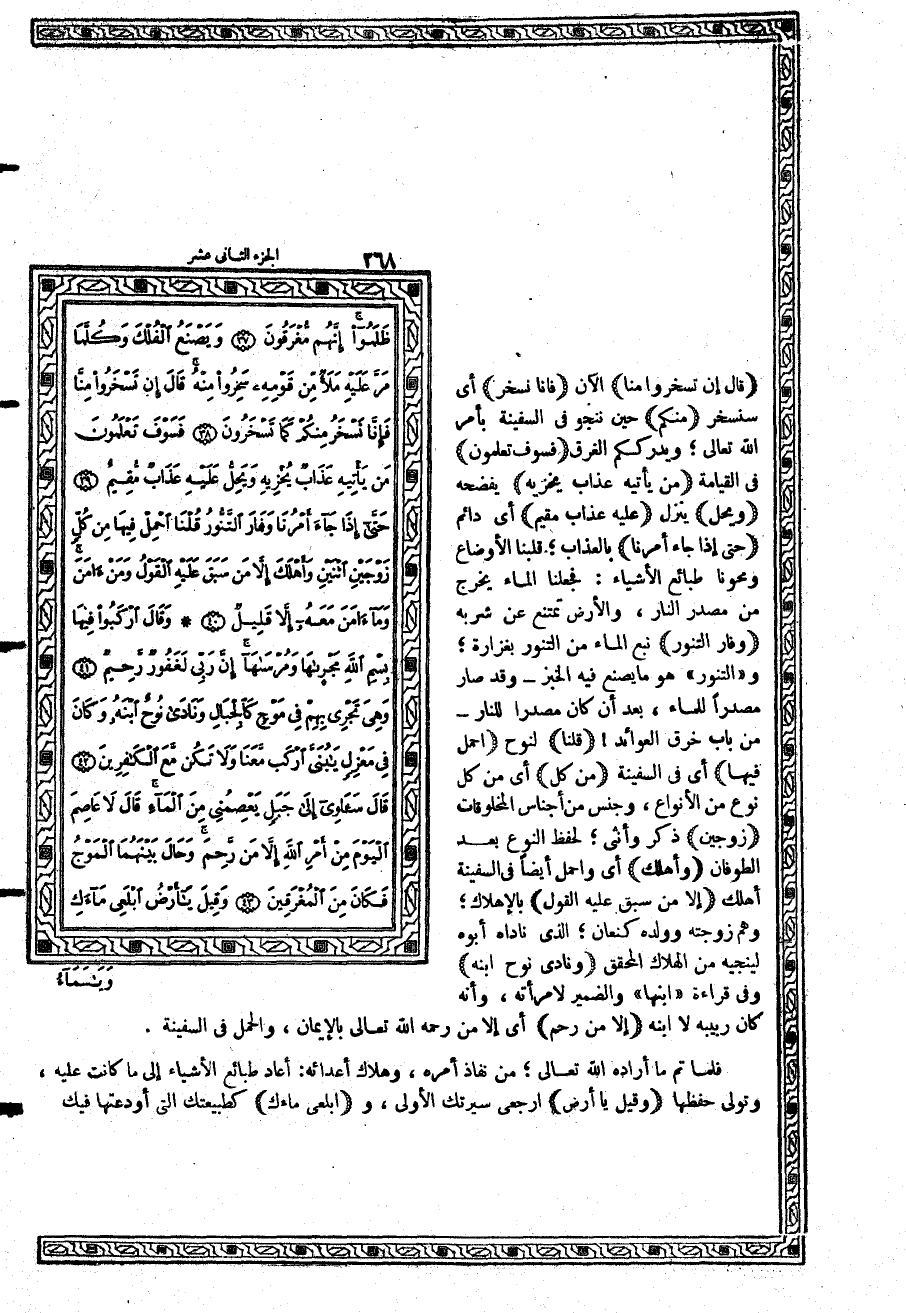 ٢٦٨ الجزء الثانى عشر
ظَلَمُوٓا۟ إِنَّهُم مُّغْرَقُونَ ﴿٣٧﴾ وَيَصْنَعُ ٱلْفُلْكَ وَكُلَّمَا
مَرَّ عَلَيْهِ مَلَأٌ مِّن قَوْمِهِۦ سَخِرُوا۟ مِنْهُ ۚ قَالَ إِن تَسْخَرُوا۟ مِنَّا
فَإِنَّا نَسْخَرُ مِنكُمْ كَمَا تَسْخَرُونَ ﴿٣٨﴾ فَسَوْفَ تَعْلَمُونَ
مَن يَأْتِيهِ عَذَابٌ يُخْزِيهِ وَيَحِلُّ عَلَيْهِ عَذَابٌ مُّقِيمٌ ﴿٣٩﴾
حَتَّىٰٓ إِذَا جَآءَ أَمْرُنَا وَفَارَ ٱلتَّنُّورُ قُلْنَا ٱحْمِلْ فِيهَا مِن كُلٍّ
زَوْجَيْنِ ٱثْنَيْنِ وَأَهْلَكَ إِلَّا مَن سَبَقَ عَلَيْهِ ٱلْقَوْلُ وَمَنْ ءَامَنَ ۚ
وَمَآ ءَامَنَ مَعَهُۥٓ إِلَّا قَلِيلٌ ﴿٤٠﴾ * وَقَالَ ٱرْكَبُوا۟ فِيهَا
بِسْمِ ٱللَّهِ مَجْر۪ىٰهَا وَمُرْسَىٰهَآ ۚ إِنَّ رَبِّى لَغَفُورٌ رَّحِيمٌ ﴿٤١﴾
وَهِىَ تَجْرِى بِهِمْ فِى مَوْجٍ كَٱلْجِبَالِ وَنَادَىٰ نُوحٌ ٱبْنَهُۥ وَكَانَ
فِى مَعْزِلٍ يَـٰبُنَىَّ ٱرْكَب مَّعَنَا وَلَا تَكُن مَّعَ ٱلْكَـٰفِرِينَ ﴿٤٢﴾
قَالَ سَـَٔاوِىٓ إِلَىٰ جَبَلٍ يَعْصِمُنِى مِنَ ٱلْمَآءِ ۚ قَالَ لَا عَاصِمَ
ٱلْيَوْمَ مِنْ أَمْرِ ٱللَّهِ إِلَّا مَن رَّحِمَ ۚ وَحَالَ بَيْنَهُمَا ٱلْمَوْجُ
فَكَانَ مِنَ ٱلْمُغْرَقِينَ ﴿٤٣﴾ وَقِيلَ يَـٰٓأَرْضُ ٱبْلَعِى مَآءَكِ
وَيَـٰسَمَآءُ
﴿قال إن تسخروا منا﴾ الآن ﴿فانا نسخر﴾ أى
سنسخر ﴿منكم﴾ حين ننجو فى السفينة بأمر
الله تعالى ؛ ويدرككم الغرق ﴿فسوف تعلمون﴾
فى القيامة ﴿من يأتيه عذاب يخزيه﴾ يفضحه
﴿ويحل﴾ ينزل ﴿عليه عذاب مقيم﴾ أى دائم
﴿حتى إذا جاء أمرنا﴾ بالعذاب ؛ قلبنا الأوضاع
ومحونا طبائع الأشياء : فجعلنا الماء يخرج
من مصدر النار ، والأرض تمتنع عن شربه
﴿وفار التنور﴾ نبع الماء من التنور بغزارة ؛
و «التنور» هو مايصنع فيه الخبز ــ وقد صار
مصدراً للماء ، بعد أن كان مصدرا للنار ــ
من باب خرق العوائد ! ﴿قلنا﴾ لنوح ﴿احمل
فيها﴾ أى فى السفينة ﴿من كل﴾ أى من كل
نوع من الأنواع ، وجنس من أجناس المخلوقات
﴿زوجين﴾ ذكر وأنثى ؛ لحفظ النوع بعد
الطوفان ﴿وأهلك﴾ أى واحمل أيضاً فى السفينة
أهلك ﴿إلا من سبق عليه القول﴾ بالإهلاك ؛
وهم زوجته وولده كنعان ؛ الذى ناداه أبوه
لينجيه من الهلاك المحقق ﴿ونادى نوح ابنه﴾
وفى قراءة «ابنها» والضمير لامرأته ، وأنه
كان ربيبه لا ابنه ﴿إلا من رحم﴾ أى إلا من رحمه الله تعالى بالإيمان ، والحمل فى السفينة .
فلما تم ما أراده الله تعالى ؛ من نفاذ أمره ، وهلاك أعدائه : أعاد طبائع الأشياء إلى ما كانت عليه ،
وتولى حفظها ﴿وقيل يا أرض﴾ ارجعى سيرتك الأولى ، و ﴿ابلعى ماءك﴾ كطبيعتك التى أودعتها فيك